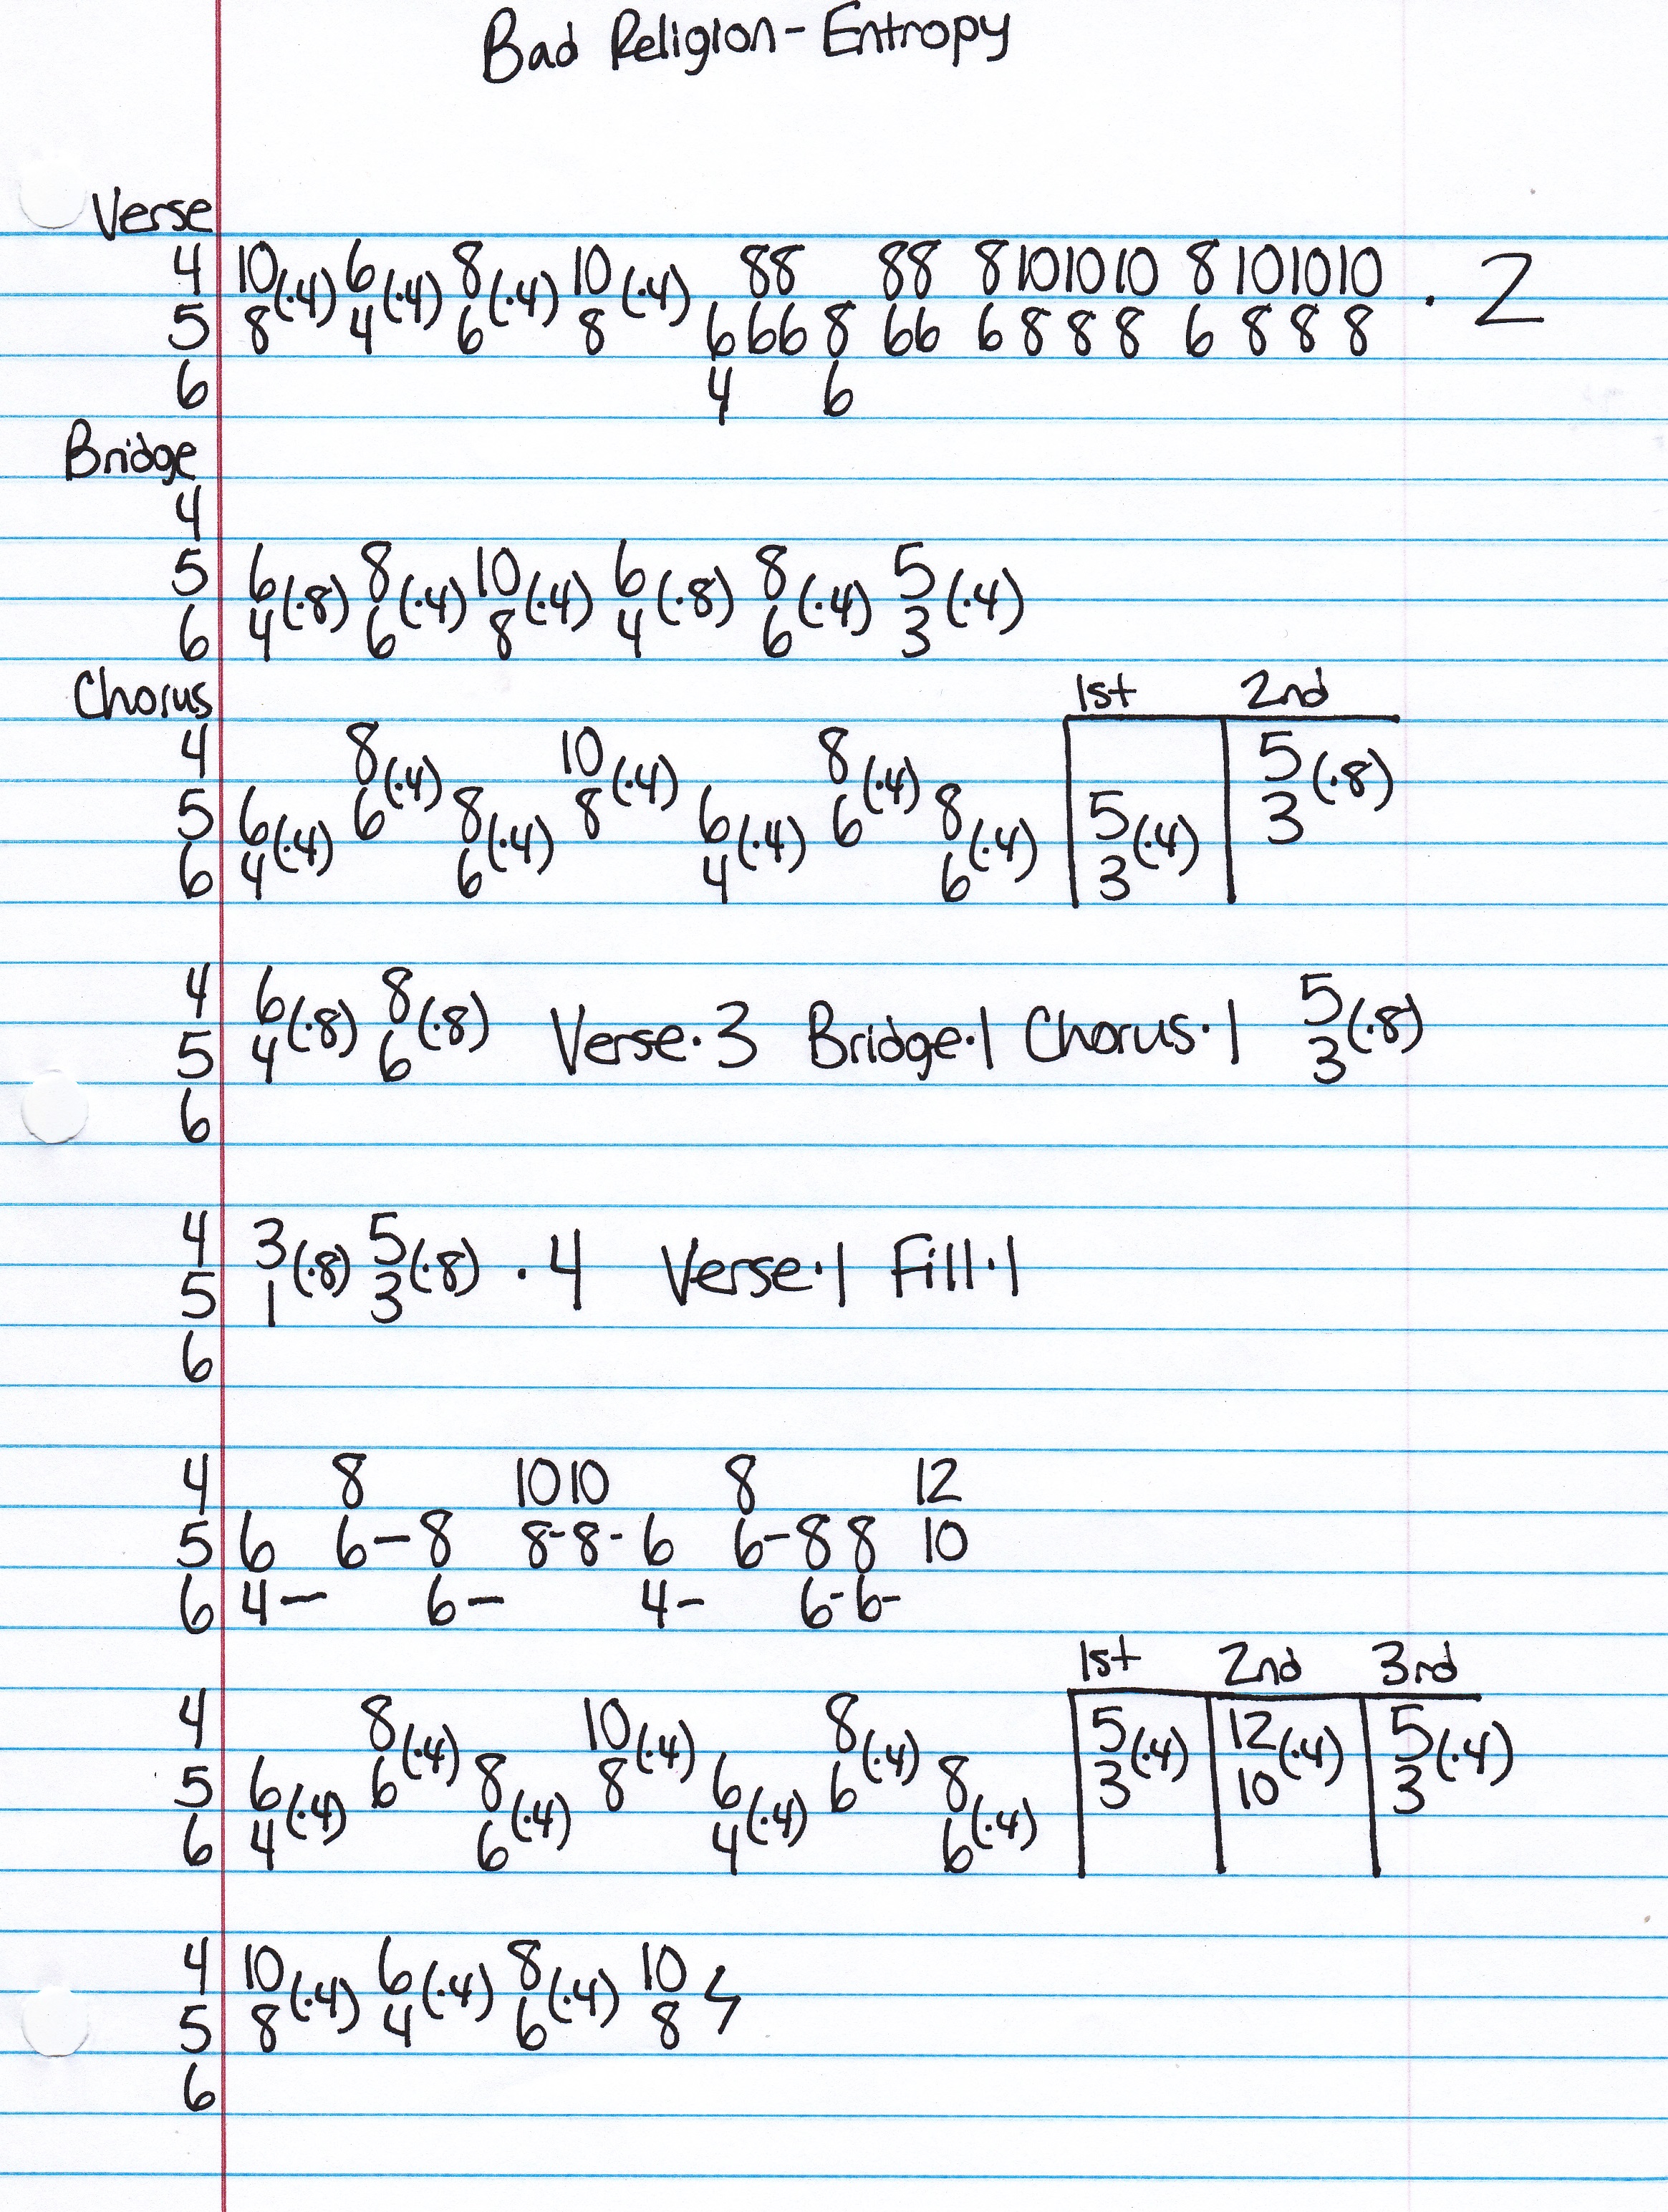 Bad Religion - Entropy
Verse
4 10(·4) 6(·4) 8(·4) 10(·4) 88 88 8101010 8101010 · 2
5 8 4 6 8 6668 66 6888 6888
6 4 6
Bridge
4
5 6(·8) 8(·4) 10(·4) 6(·8) 8(·4) 5(·4)
6 4 6 8 4 6 3
Chorus 1st 2nd
4 8(·4) 10(·4) 8(·4) 5(·8)
5 6(·4) 6 8(·4) 8 6(·4) 6 8(·4) 5(·4) 3
6 4 6 4 6 3
4 6(·8) 8(·8) Verse·3 Bridge·1 Chorus·1 5(·8)
5 4 6 3
6
4 3(·8) 5(·8) · 4 Verse·1 Fill·1
5 1 3
6
4 8 1010 8 12
5 6 6-8 8-8-6 6-88 10
6 4- 6- 4- 6-6-
1st 2nd 3rd
4 8(·4) 10(·4) 8(·4) 5(·4) 12(·4) 5(·4)
5 6(·4) 6 8(·4) 8 6(·4) 6 8(·4) 3 10 3
6 4 6 4 6
4 10(·4) 6(·4) 8(·4) 10
5 8 4 6 8
6